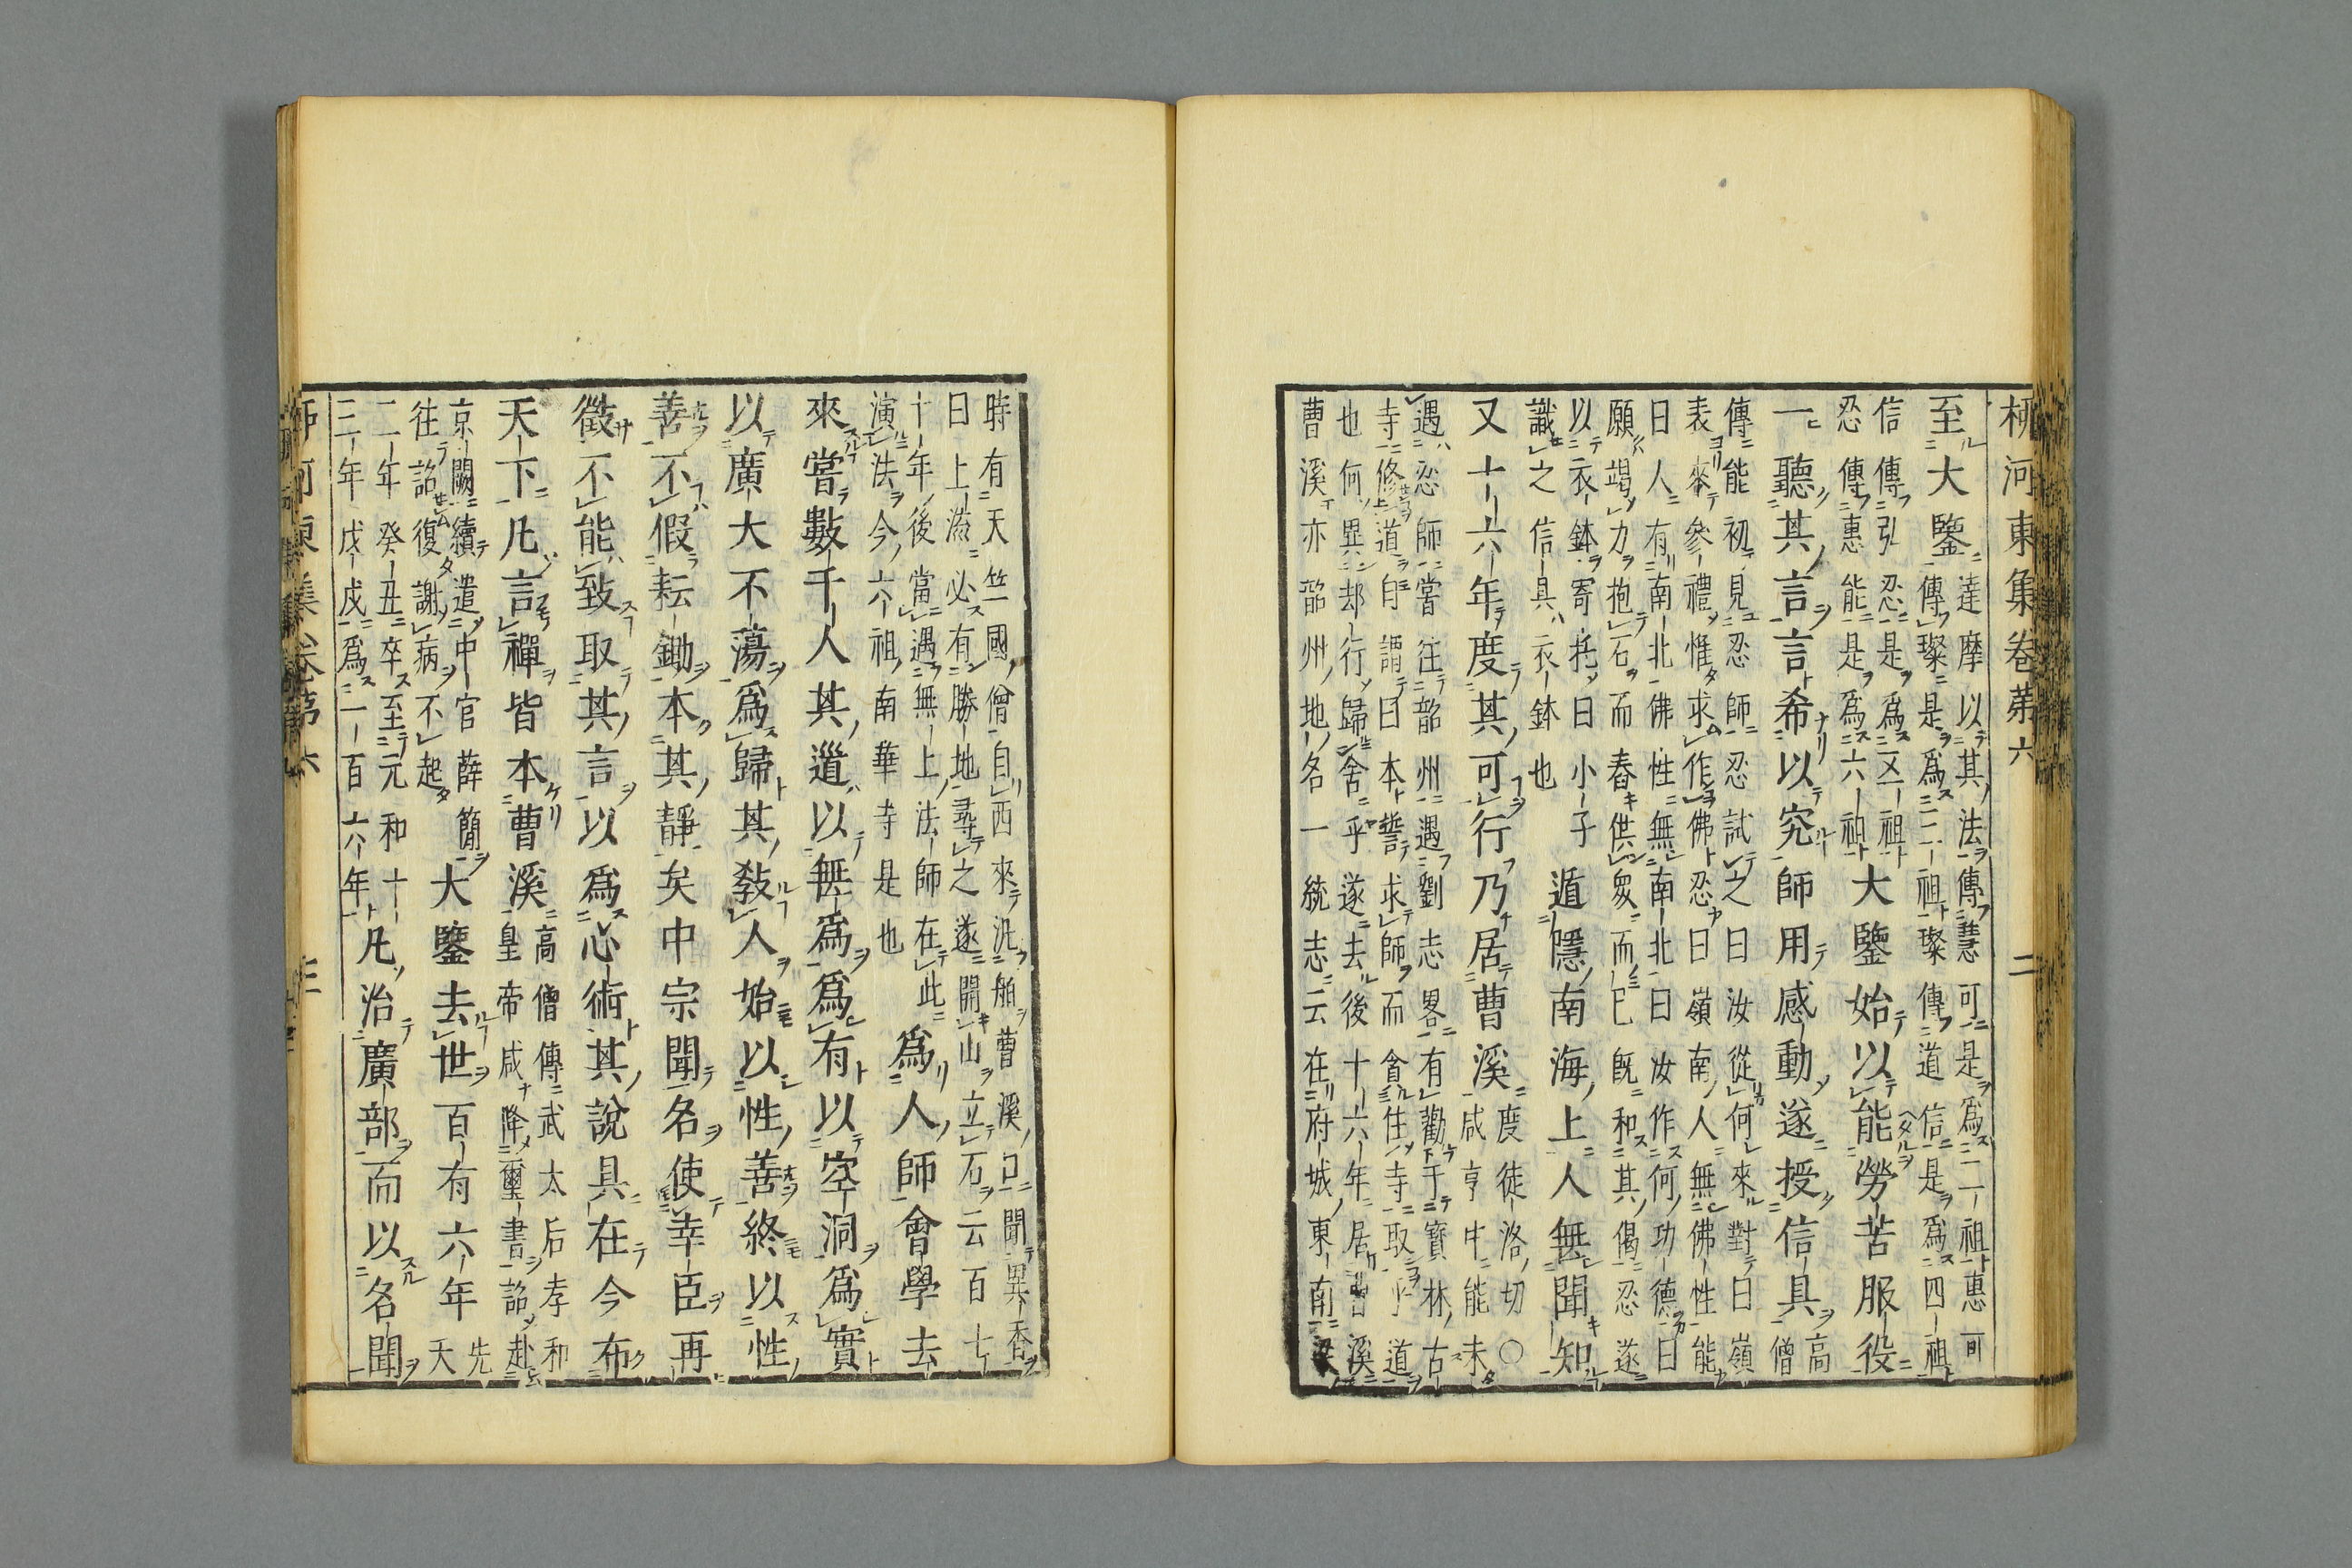 柳河東集卷第六 二
至大鑒達摩以其法傳慧可是爲二祖惠可
傳璨是爲三祖璨傳道信是爲四祖
信傳弘忍是爲五祖大鑒始以能勞苦服役
忍傳惠能是爲六祖
一聽其言言希以究師用感動遂授信具高
僧
傳能初見忍師忍試之曰汝從何來對曰嶺
表來參禮惟求作佛忍曰嶺南人無佛性能
曰人有南北佛性無南北曰汝作何功德曰
願竭力抱石而舂供衆而已既和其偈忍遂
以衣鉢寄托曰小子
識之信具衣鉢也
遁隱南海上人無聞知
又十六年度其可行乃居曹溪度徒洛切○
咸亨中能未
遇忍師嘗往韶州遇劉志畧有勸于寶林古
寺修道自謂曰本誓求師而貪住寺取乎道
也何異却行歸舍乎遂去後十六年居曹溪
曹溪亦韶州地名一統志云在府城東南梁
時有天竺國僧自西來汎舶曹溪口聞異香
曰上流必有勝地尋之遂開山立石云百七
十年後當遇無上法師在此
演法今六祖南華寺是也
爲人師會學去
來嘗數千人其道以無爲爲有以空洞爲實
以廣大不蕩爲歸其教人始以性善終以性
善不假耘鋤本其靜矣中宗聞名使幸臣再
徵不能致取其言以爲心術其說具在今布
天下凡言禪皆本曹溪高僧傳武太后孝和
皇帝咸降璽書詔赴
京闕續遣中官薛簡
往詔復謝病不起
大鑒去世百有六年先
天
二年癸丑卒至元和十
三年戊戌爲一百六年
凡治廣部而以名聞